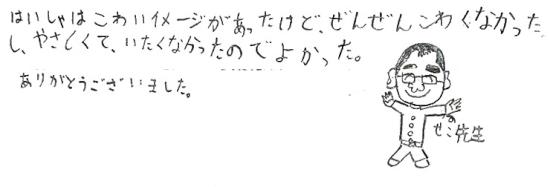 はいしゃはこわいイメージがあったけど、ぜんぜんこわくなかった
し、やさしくて、いたくなかったのでよかった。
ありがとうございました。
せこ先生